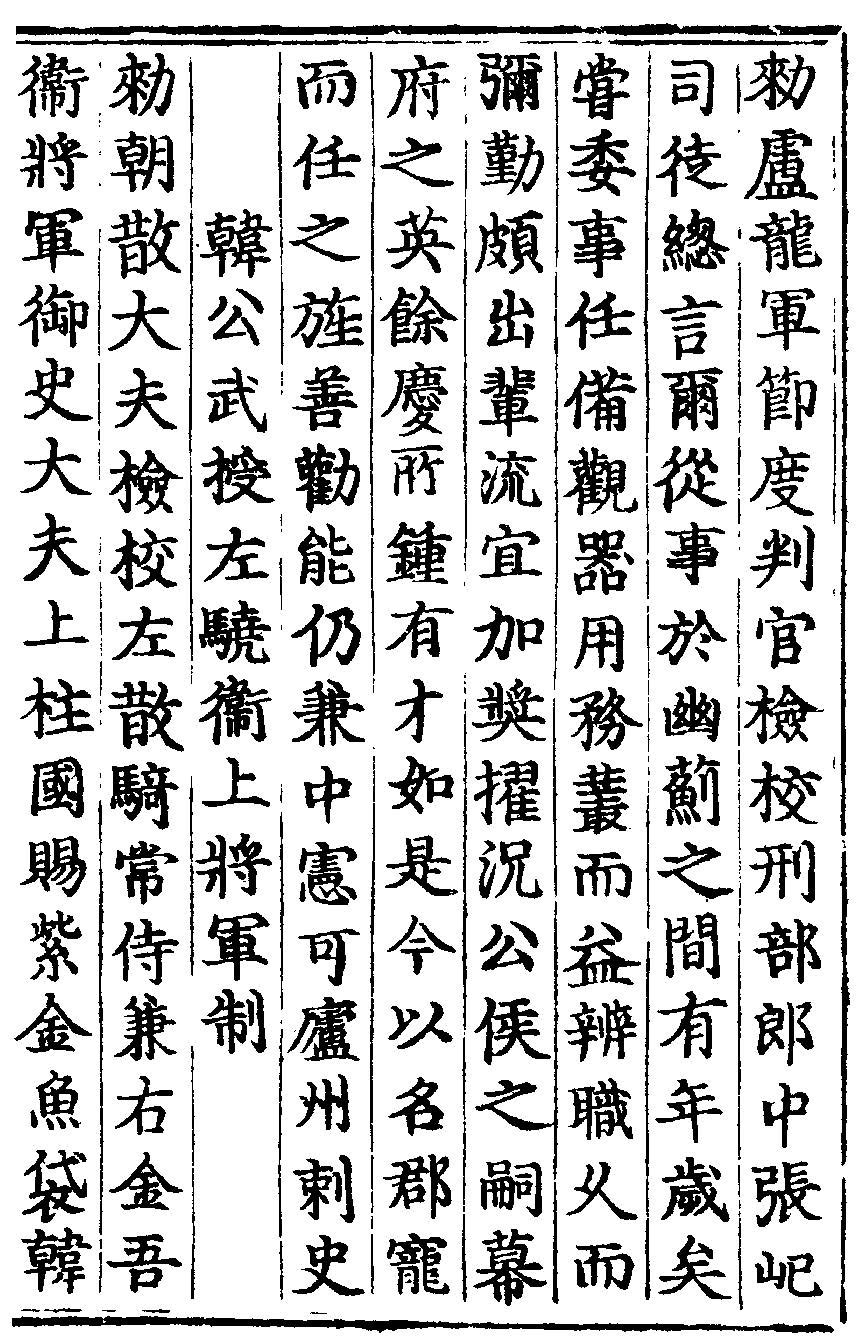 勑盧龍軍節度判官檢校刑部郎中張屺
司徒總言爾從事於幽薊之間有年歲矣
嘗委事任備觀器用務叢而益辨職乆而
彌勤頗出輩流宜加奬擢況公侯之嗣幕
府之英餘慶所鍾有才如是今以名郡寵
而任之旌善勸能仍兼中憲可廬州刺史
韓公武授左驍衞上將軍制
勑朝散大夫檢校左散騎常侍兼右金吾
衞將軍御史大夫上柱國賜紫金魚袋韓